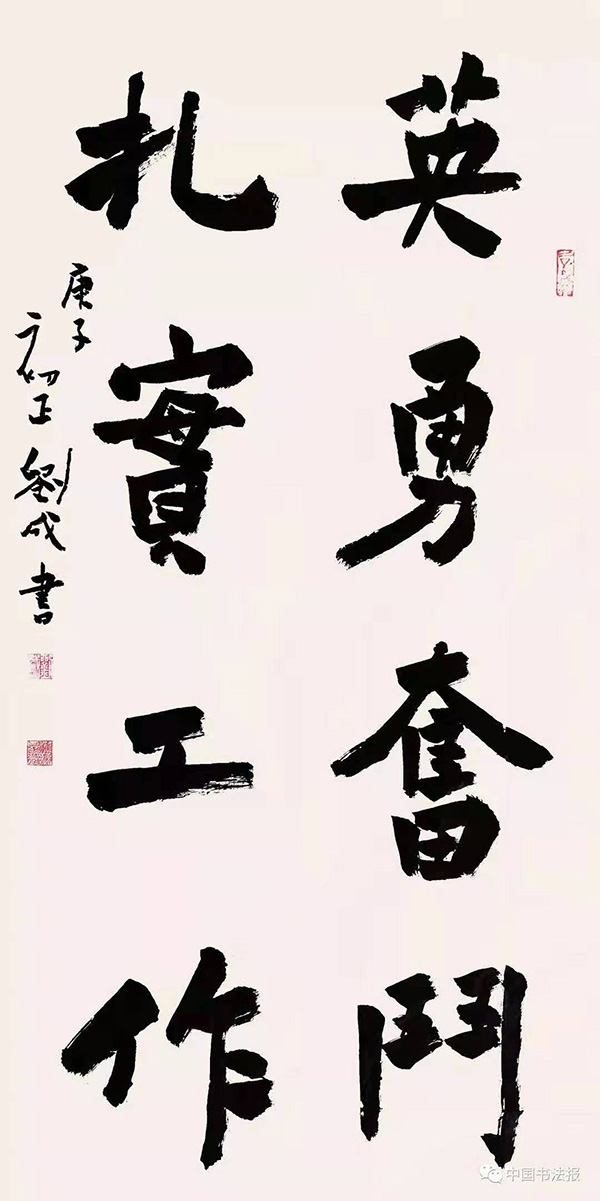 英勇奮鬥
扎實工作
庚子
劉成書
中国书法报